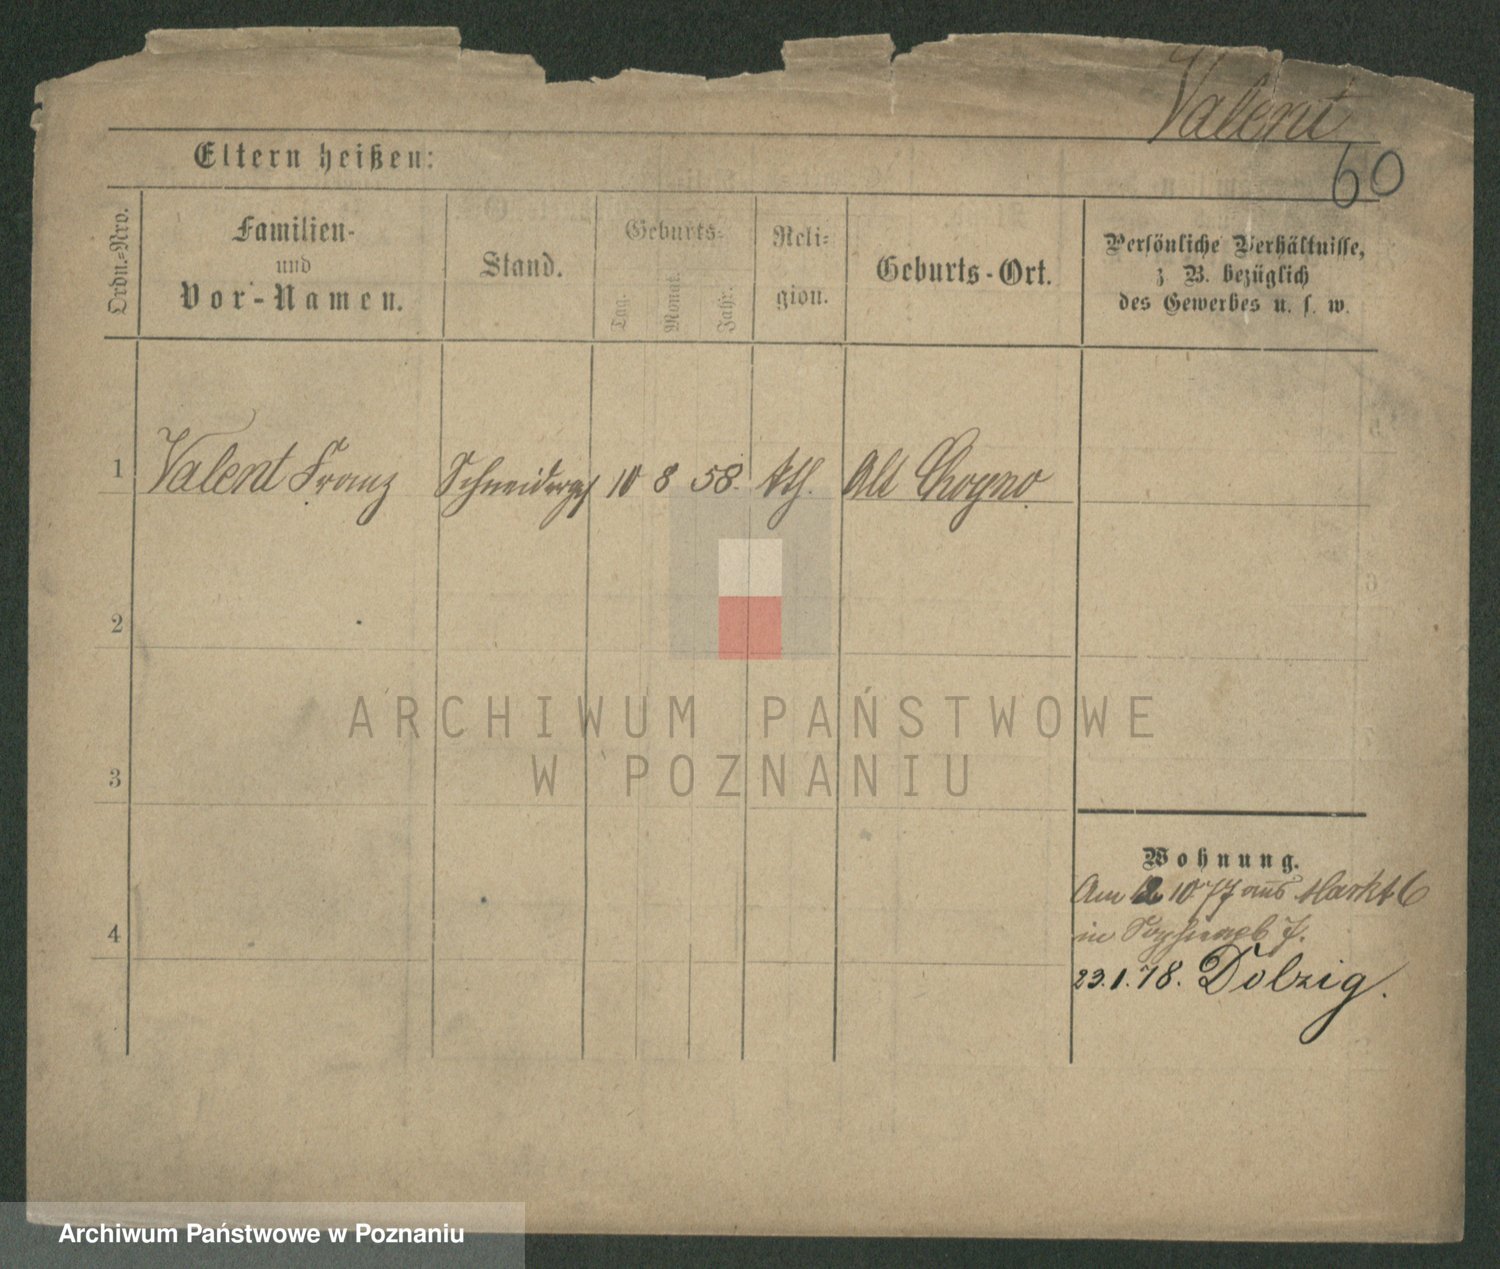 Valent
60
Eltern heißen:
Ordn.=Nro.
Familien-
und
Vor-Namen.
Stand.
Geburts-
Tag.
Monat.
Jahr.
Reli-
gion.
Geburts-Ort.
Persönliche Verhältnisse,
z B. bezüglich
des Gewerbes u. s. w.
1 Valent Franz Schneiderges 10 8 58. kth. Alt
2
3
4
ARCHIWUM PAŃSTWOWE
W POZNANIU
Wohnung.
Am 10 77 aus Markt 6
in 7.
23.1.78. Dolzig.
Archiwum Państwowe w Poznaniu